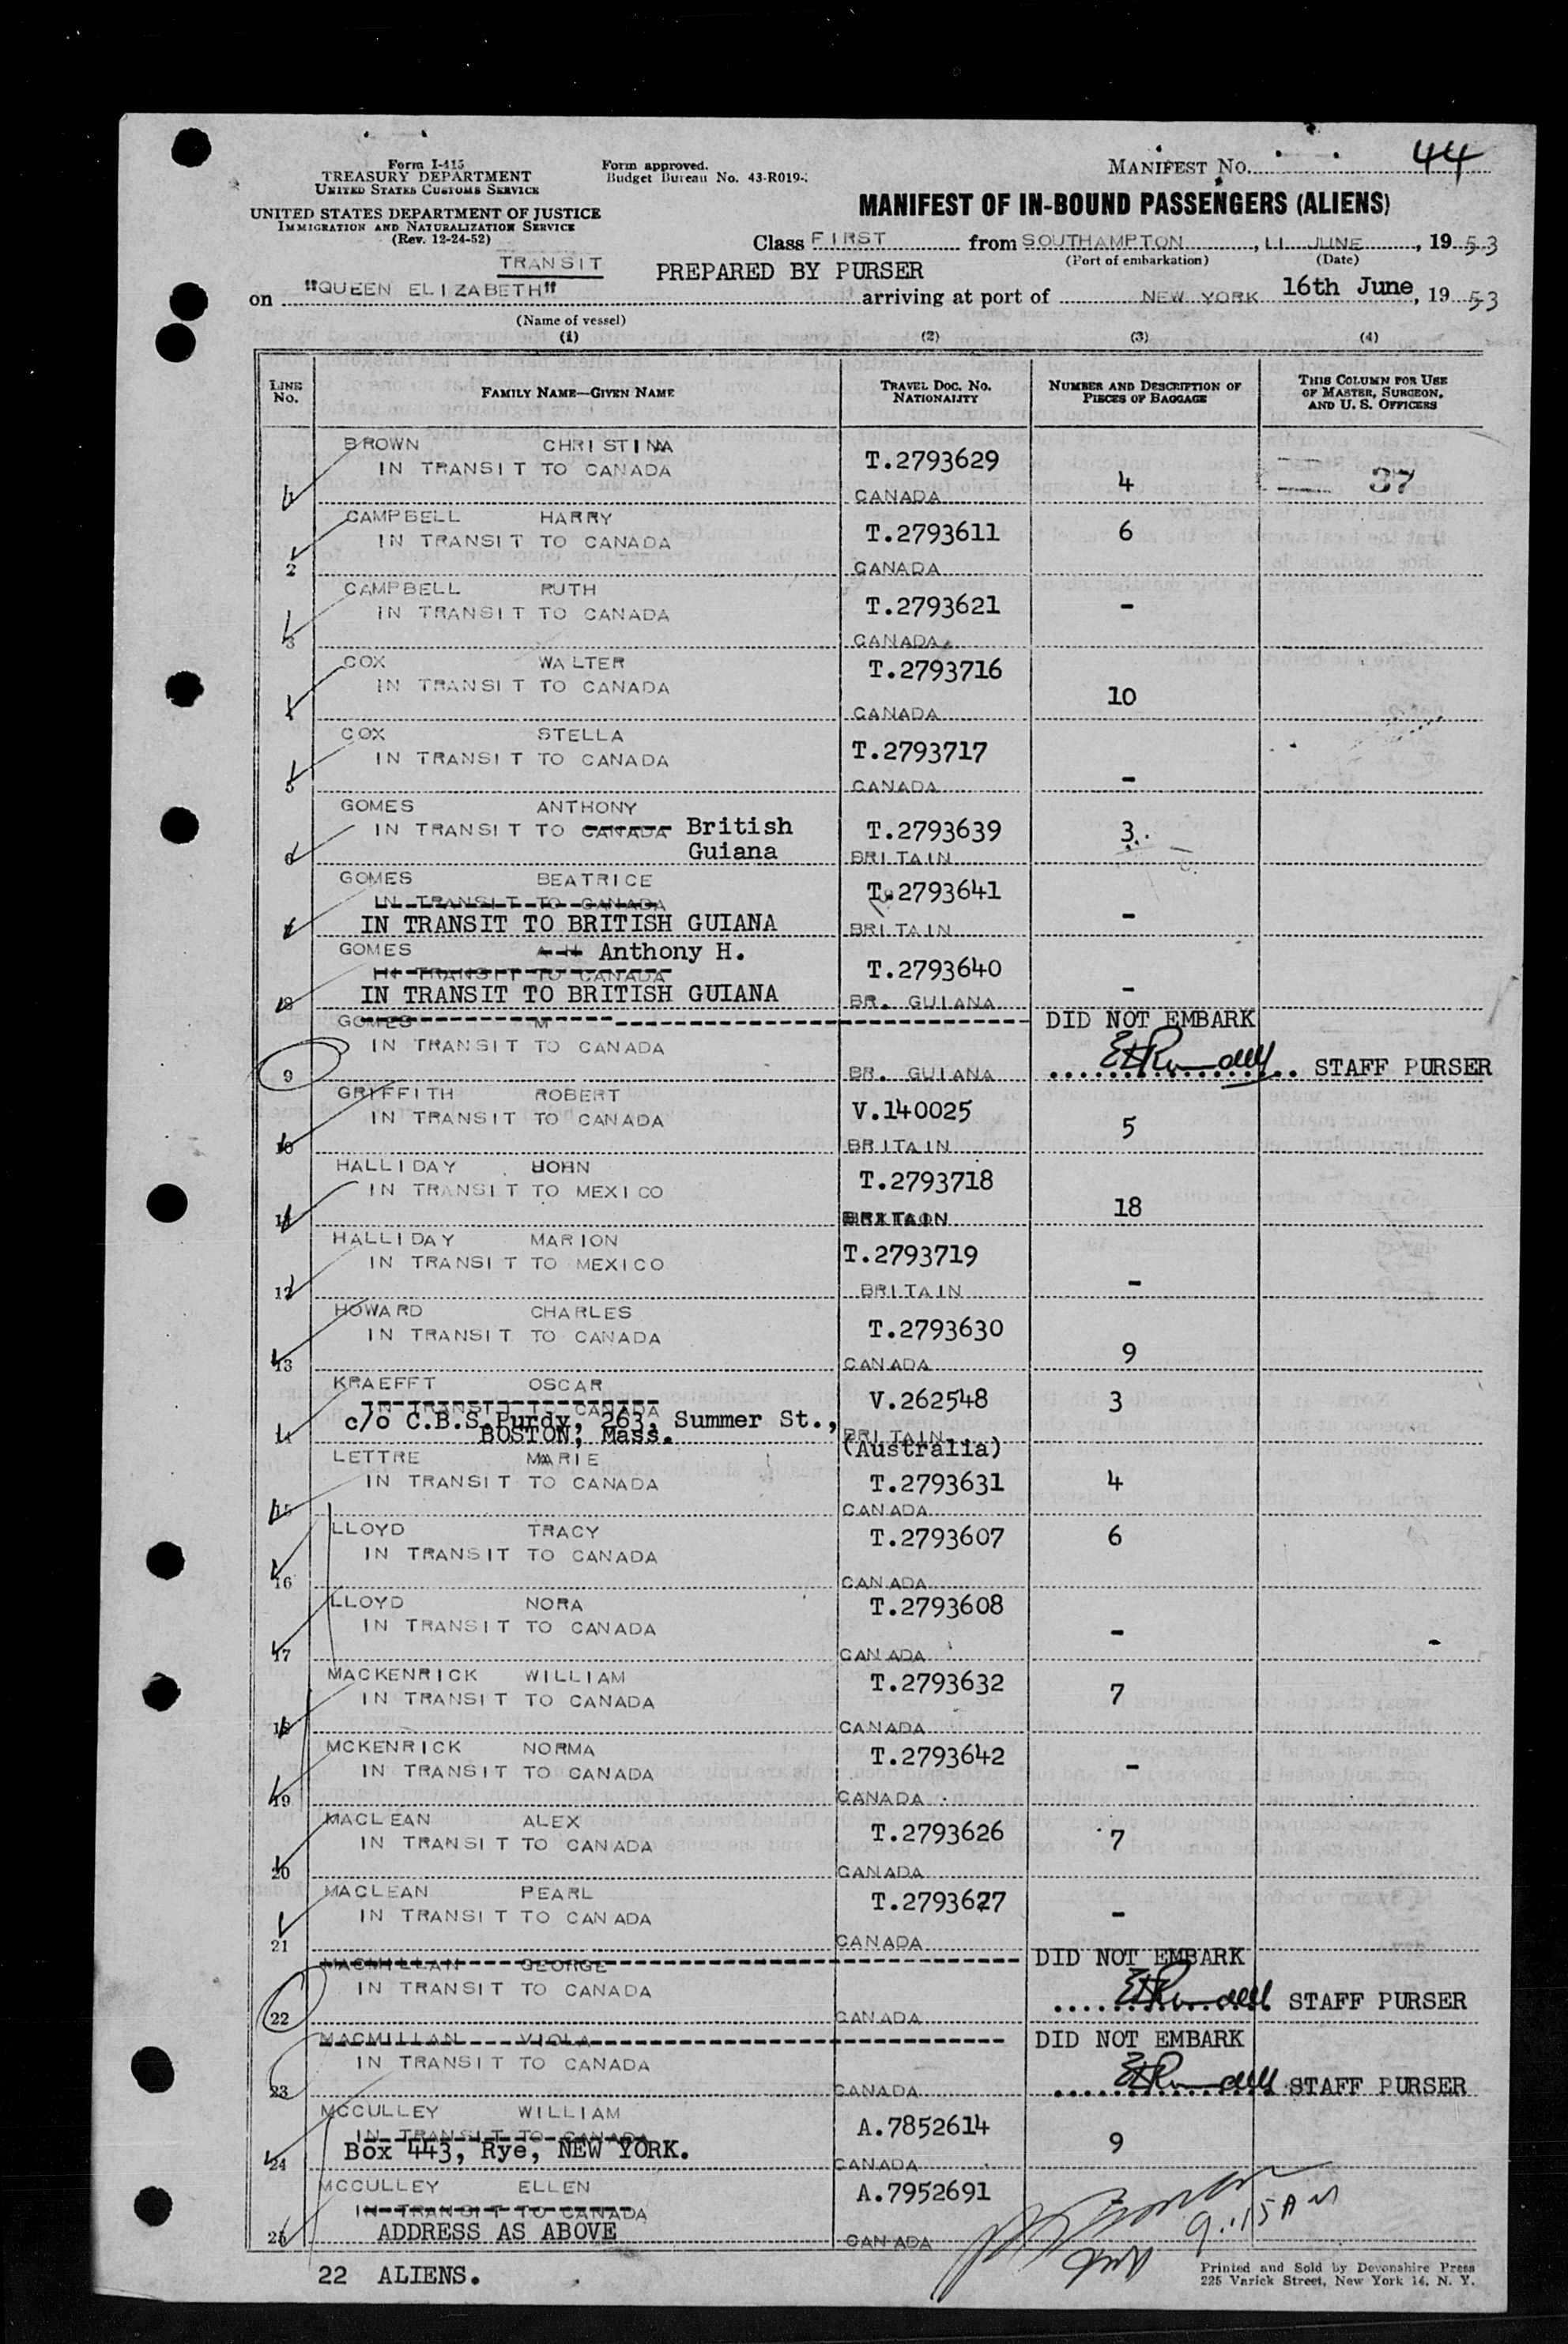 44
Form I-415
TREASURY DEPARTMENT
UNITED STATES CUSTOMS SERVICE
UNITED STATES DEPARTMENT OF JUSTICE
IMMIGRATION AND NATURALIZATION SERVICE
(Rev. 12-24-52)
Form approved.
Budget Bureau No. 43-R019-
MANIFEST NO.
MANIFEST OF IN-BOUND PASSENGERS (ALIENS)
Class FIRST from SOUTHAMPTON, 11 JUNE, 1953
(Port of embarkation) (Date)
TRANSIT PREPARED BY PURSER
on "QUEEN ELIZABETH" arriving at port of NEW YORK 16th June, 1953
(Name of vessel)
(1) (2) (3) (4)
LINE No. FAMILY NAME—GIVEN NAME TRAVEL DOC. NO. NATIONALITY NUMBER AND DESCRIPTION OF PIECES OF BAGGAGE THIS COLUMN FOR USE OF MASTER, SURGEON, AND U. S. OFFICERS
BROWN CHRISTINA
IN TRANSIT TO CANADA T.2793629
1 CANADA 4 37
CAMPBELL HARRY
IN TRANSIT TO CANADA T.2793611 6
2 CANADA
CAMPBELL RUTH
IN TRANSIT TO CANADA T.2793621 -
3 CANADA
COX WALTER T.2793716
IN TRANSIT TO CANADA 10
4 CANADA
COX STELLA T.2793717
IN TRANSIT TO CANADA
5 CANADA -
GOMES ANTHONY
IN TRANSIT TO CANADA British T.2793639 3
6 Guiana BRITAIN
GOMES BEATRICE T.2793641
IN TRANSIT TO CANADA
7 IN TRANSIT TO BRITISH GUIANA BRITAIN -
GOMES A H Anthony H.
IN TRANSIT TO CANADA T.2793640
8 IN TRANSIT TO BRITISH GUIANA BR. GUIANA -
GOMES M DID NOT EMBARK
IN TRANSIT TO CANADA
9 BR. GUIANA STAFF PURSER
GRIFFITH ROBERT V.140025
IN TRANSIT TO CANADA 5
10 BRITAIN
HALLIDAY JOHN T.2793718
IN TRANSIT TO MEXICO
11 BRITAIN 18
HALLIDAY MARION T.2793719
IN TRANSIT TO MEXICO
12 BRITAIN -
HOWARD CHARLES T.2793630
IN TRANSIT TO CANADA
13 CANADA 9
KRAEFFT OSCAR V.262548 3
IN TRANSIT TO CANADA
c/o C.B.S.Purdy, 263, Summer St.,
14 BOSTON, Mass. BRITAIN
(Australia)
LETTRE MARIE
IN TRANSIT TO CANADA T.2793631 4
15 CANADA
LLOYD TRACY T.2793607 6
IN TRANSIT TO CANADA
16 CANADA
LLOYD NORA T.2793608
IN TRANSIT TO CANADA -
17 CANADA
MACKENRICK WILLIAM T.2793632
IN TRANSIT TO CANADA 7
18 CANADA
MCKENRICK NORMA T.2793642
IN TRANSIT TO CANADA -
19 CANADA
MACLEAN ALEX T.2793626
IN TRANSIT TO CANADA 7
20 CANADA
MACLEAN PEARL T.2793627
IN TRANSIT TO CANADA -
21 CANADA
MACMILLAN GEORGE DID NOT EMBARK
IN TRANSIT TO CANADA
22 CANADA STAFF PURSER
MACMILLAN VIOLA DID NOT EMBARK
IN TRANSIT TO CANADA
23 CANADA STAFF PURSER
MCCULLEY WILLIAM A.7852614
IN TRANSIT TO CANADA 9
24 Box 443, Rye, NEW YORK. CANADA
MCCULLEY ELLEN A.7952691
IN TRANSIT TO CANADA
25 ADDRESS AS ABOVE CANADA
9:15 AM
22 ALIENS.
Printed and Sold by Devonshire Press
225 Varick Street, New York 14, N. Y.